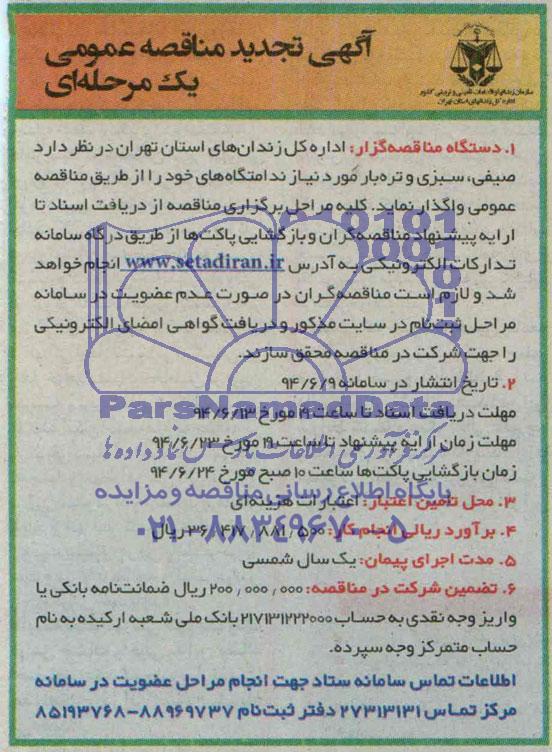 آگهی تجدید مناقصه عمومی
یک مرحله‌ای
سازمان زندانها و اقدامات تأمینی و تربیتی کشور
اداره کل زندانهای استان تهران
۱. دستگاه مناقصه‌گزار: اداره کل زندان‌های استان تهران در نظر دارد
صیفی، سبزی و تره‌بار مورد نیاز ندامتگاه‌های خود را از طریق مناقصه
عمومی واگذار نماید. کلیه مراحل برگزاری مناقصه از دریافت اسناد تا
ارایه پیشنهاد مناقصه‌گران و بازگشایی پاکت‌ها از طریق درگاه سامانه
تدارکات الکترونیکی به آدرس www.setadiran.ir انجام خواهد
شد و لازم است مناقصه‌گران در صورت عدم عضویت در سامانه
مراحل ثبت‌نام در سایت مذکور و دریافت گواهی امضای الکترونیکی
را جهت شرکت در مناقصه محقق سازند.
۲. تاریخ انتشار در سامانه ۹۴/۶/۹
مهلت دریافت اسناد تا ساعت ۱۹ مورخ ۹۴/۶/۱۳
مهلت زمان ارایه پیشنهاد تا ساعت ۱۹ مورخ ۹۴/۶/۲۳
زمان بازگشایی پاکت‌ها ساعت ۱۰ صبح مورخ ۹۴/۶/۲۴
۳. محل تأمین اعتبار: اعتبارات هزینه‌ای
۴. برآورد ریالی انجام کار: ۳۶/۴۱۷/۸۸۱/۵۰۰ ریال
۵. مدت اجرای پیمان: یک سال شمسی
۶. تضمین شرکت در مناقصه: ۲۰۰/۰۰۰/۰۰۰ ریال ضمانت‌نامه بانکی یا
واریز وجه نقدی به حساب ۲۱۷۱۳۱۲۲۲۰۰۰ بانک ملی شعبه ارکیده به نام
حساب متمرکز وجه سپرده.
اطلاعات تماس سامانه ستاد جهت انجام مراحل عضویت در سامانه
مرکز تماس ۲۷۳۱۳۱۳۱ دفتر ثبت‌نام ۸۸۹۶۹۷۳۷-۸۵۱۹۳۷۶۸
ParsNamadData
مرکز فرآوری اطلاعات پارس نماد داده‌ها
پایگاه اطلاع رسانی مناقصه و مزایده
۰۲۱-۸۸۳۴۹۶۷۰-۵